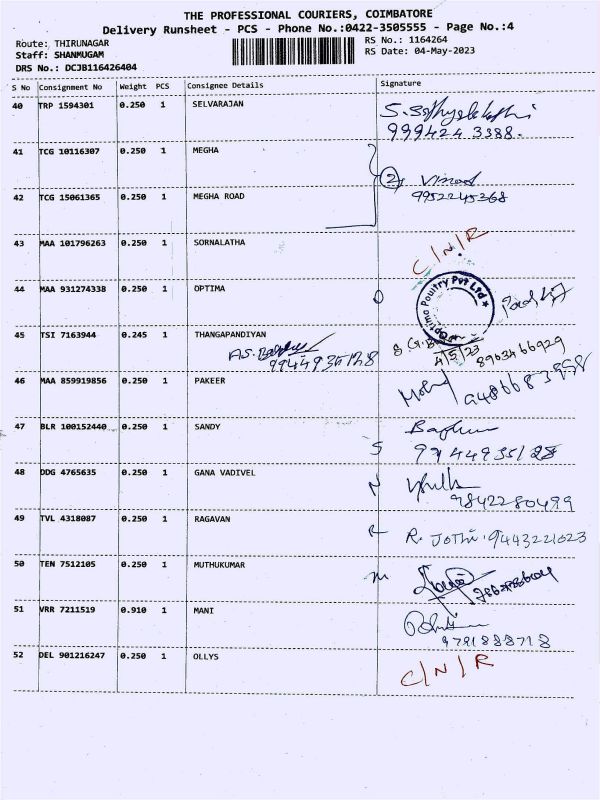 THE PROFESSIONAL COURIERS, COIMBATORE
Delivery Runsheet - PCS - Phone No.:0422-3505555 - Page No.:4
Route: THIRUNAGAR
RS No.: 1164264
Staff: SHANMUGAM
RS Date: 04-May-2023
DRS No.: DCJB116426404
S No Consignment No Weight PCS Consignee Details Signature
40 TRP 1594301 0.250 1 SELVARAJAN
999424 3388.
41 TCG 10116307 0.250 1 MEGHA
2 Vinod
9952245368
42 TCG 15061365 0.250 1 MEGHA ROAD
43 MAA 101796263 0.250 1 SORNALATHA C/N/R
44 MAA 931274338 0.250 1 OPTIMA O
Optima Poultry Pvt Ltd
45 TSI 7163944 0.245 1 THANGAPANDIYAN
4/5/23 8963466929
46 MAA 859919856 0.250 1 PAKEER
47 BLR 100152440 0.250 1 SANDY S
9944935128
48 DDG 4765635 0.250 1 GANA VADIVEL N
9842280499
49 TVL 4318087 0.250 1 RAGAVAN R R. JOTHI. 9443221023
50 TEN 7512105 0.250 1 MUTHUKUMAR M
51 VRR 7211519 0.910 1 MANI
9791888718
52 DEL 901216247 0.250 1 OLLYS C/N/R